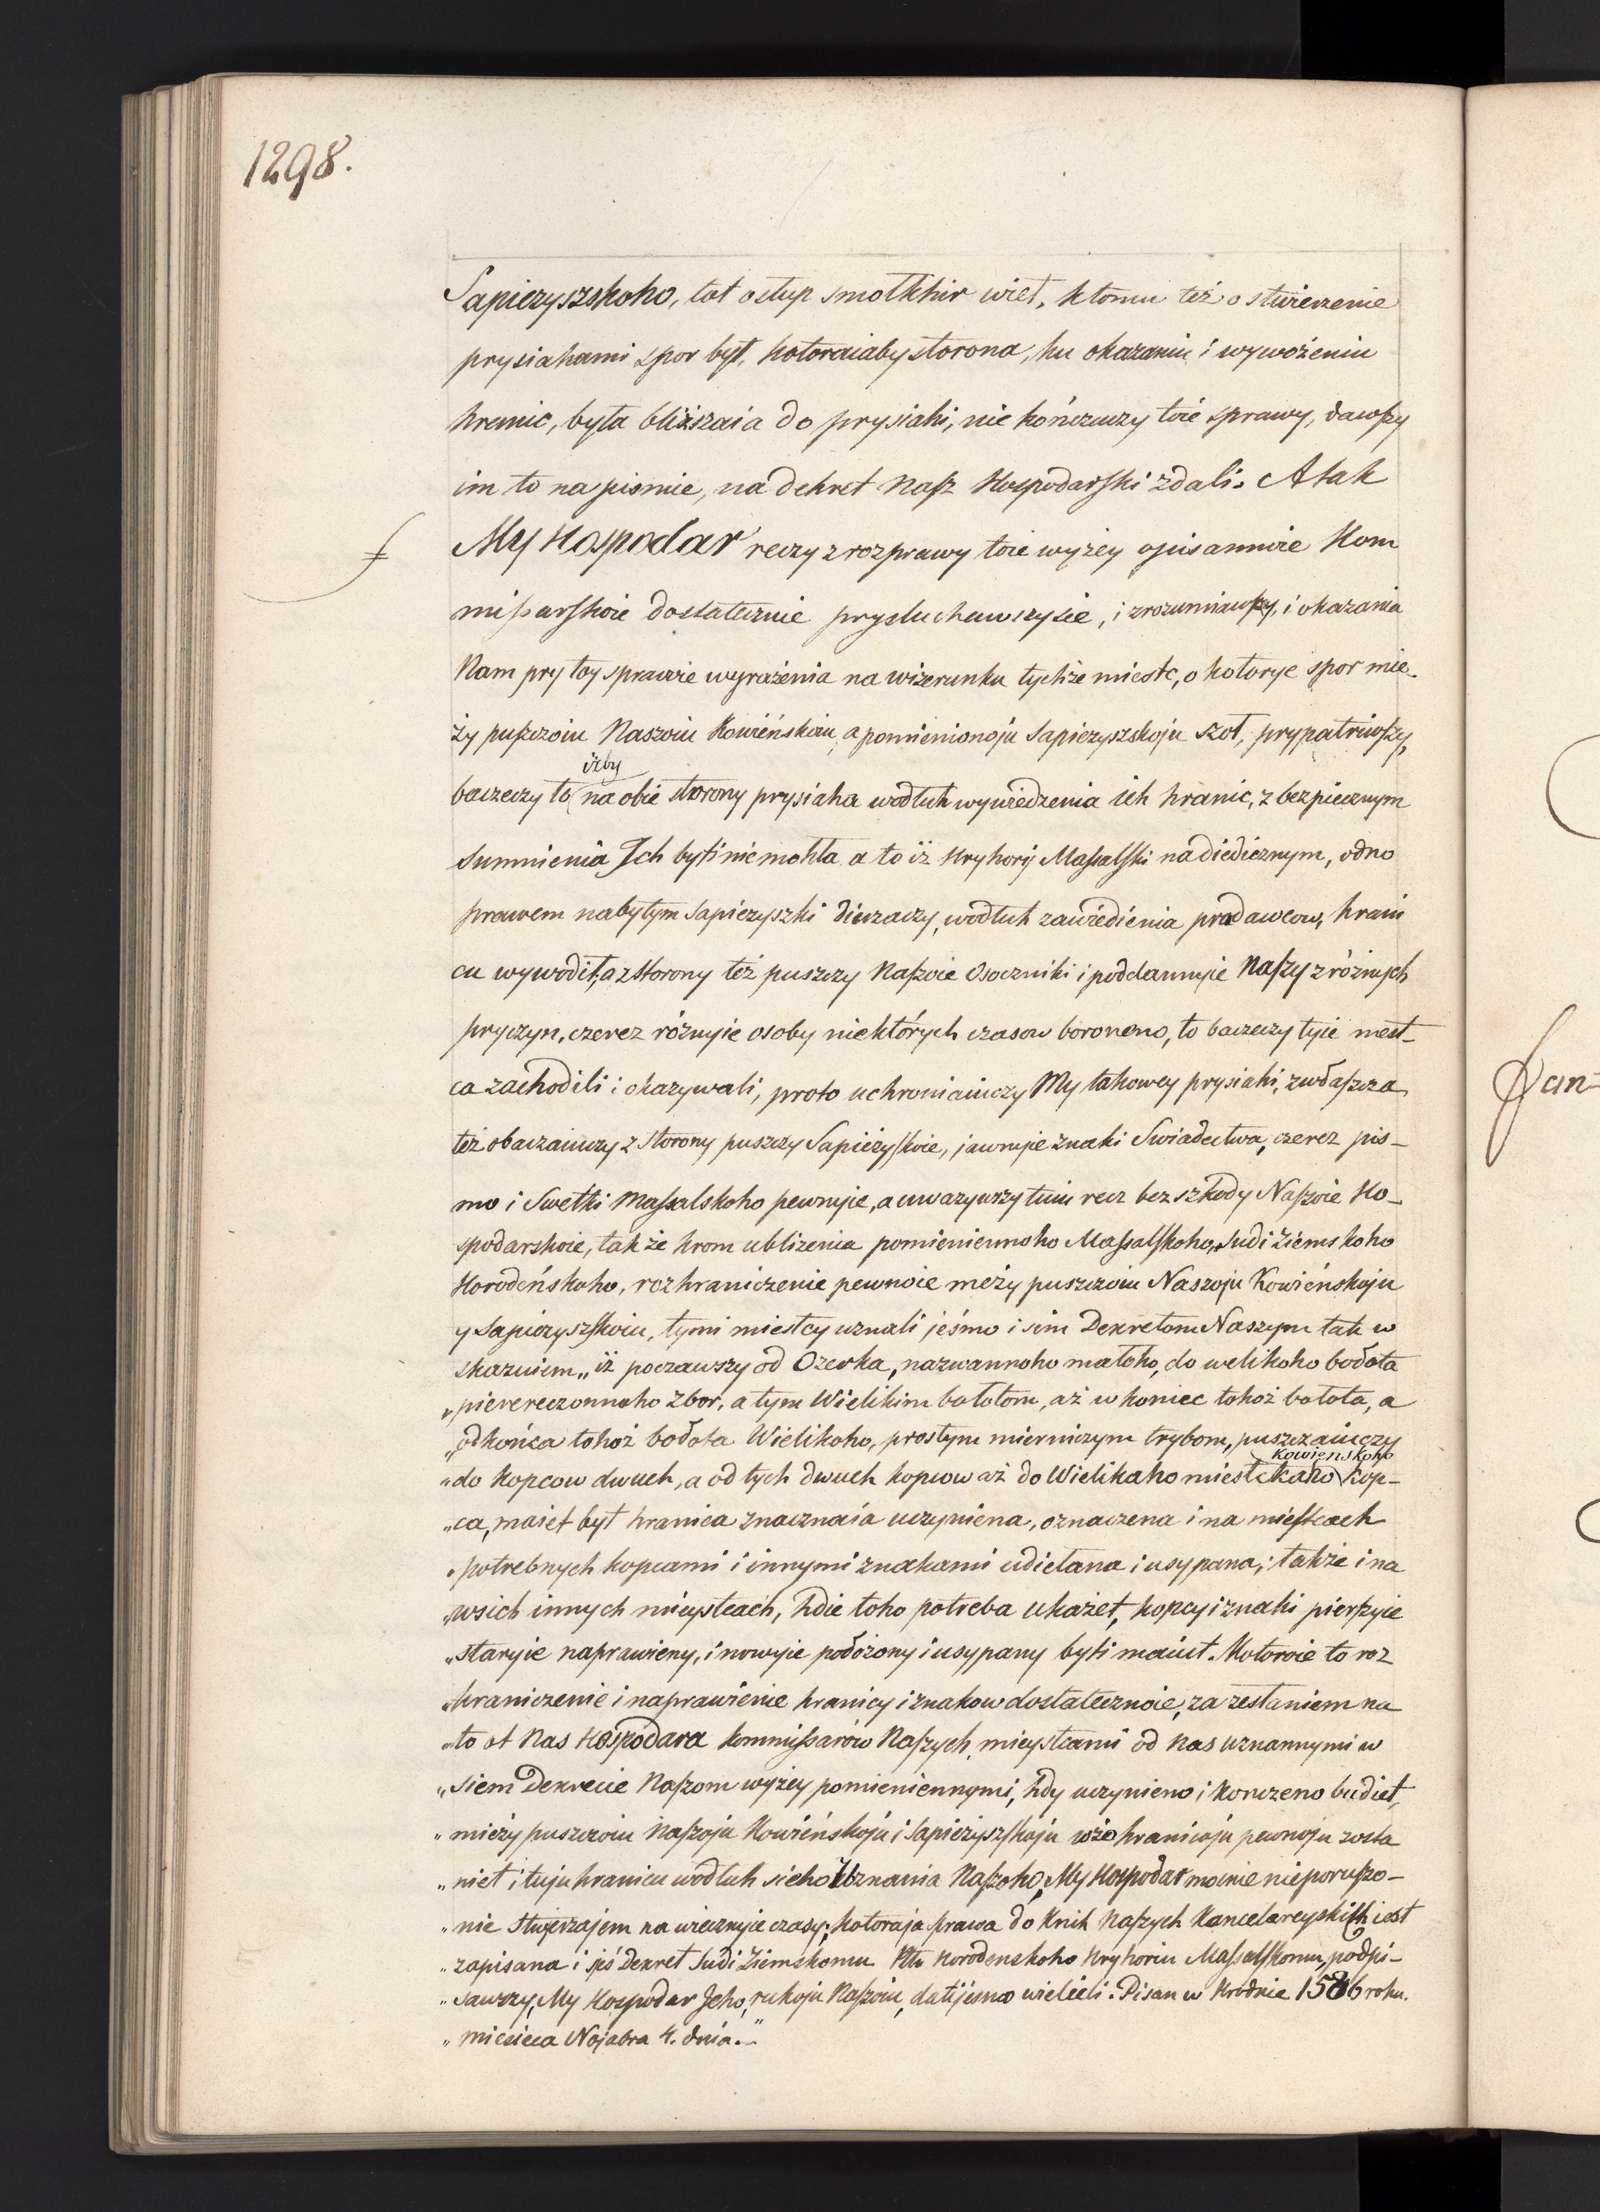 1298.
Sapiezyszskoho, tot ostup smotkhir wiet, ktomu też o stwierzenie
prysiahami spor był, kotoraiaby storona, ku okazaniu i wywożeniu
hranic, była bliższaia do prysiahi, nie kończuczy toie sprawy, dawszy
im to na pismie, na dekret Nasz Hospodarski zdali. A tak
My Hospodar reczy z rozprawy toie wyżey opisannoie Kom
missarskoie dostatecznie prysłuchawszysie, i zrozumiawszy, i okazania
Nam pry toy sprawie wyrażenia na wizerunku tychże miestc, o kotoryie spor mie-
ży puszczoiu Naszoiu Kowieńskoiu, a pomienionoju Sapiezyszskoju szoł, prypatriwszy,
iżby
baczeczy to na obie storony prysiaha wodłuh wywiedzenia ich hranic, z bezpiecznym
Sumnienia Jch byti nie mohła a to iż Hryhory Massalski na diedicznym, odno
prawem nabytym Sapiezyszki dierzaczy, wodłuh zawiedienia pradawcow, hrani
cu wywodił, a z storony też puszczy Naszoie Osoczniki i poddannyie Naszy z różnych
pryczyn, czerez różnyie osoby niektórych czasow boroneno, to baczeczy tyie mest-
ca zachodili i okazywali, proto uchroniaiuczy My takowey prysiahi, zwłaszcza
też obaczaiuczy z storony puszczy Sapieżyskoie, jawnyie znaki Swiadectwa, czerez pis-
mo i Swetki Massalskoho pewnyie, a uwazywszy tuiu recz bez szkody Naszoie Ho-
spodarskoie, także krom ubliżenia pomieniennoho Massalskoho, Sudi Ziemskoho
Horodeńskoho, rozhraniczenie pewnoie meży puszczoiu Naszoju Kowieńskoju
y Sapieżyszskoiu, tymi miestcy uznali jeśmo i sim Dekretom Naszym tak w
skazuiem „iż poczawszy od Ozerka, nazwannoho małoho, do welikoho bołota
„pierereczonnoho Zbor, a tym Wielikim bołotom, aż w koniec tohoż bołota, a
„od końca tohoż bołota Wielikoho, prostym mierniczym trybom, puszczaiuczy
Kowienskoho
„do kopcow dwuch, a od tych dwuch kopcow aż do Wielikaho miestckaho kop-
„ca, maiet być hranica znacznaia uczyniena, oznaczena i na miescach
„potrebnych kopcami i innymi znakami udiełana i usypana; także i na
„wsich innych mieystcach, hdie toho potreba ukażet, kopcy i znaki pierszyie
„staryie naprawieny, i nowyie położony i usypany byti maiut. Kotoroie to roz
„hraniczenie i naprawienie hranicy i znakow dostatecznoie, za zesłaniem na
„to ot Nas Hospodara kommissarów Naszych, mieystcami od Nas uznannymi w
„siem Dekrecie Naszom wyżey pomieniennymi, hdy uczynieno i konczeno budiet,
„mieży puszczoiu Naszoju Kowieńskoju i Sapieżyszskoju wże hranicoju pewnoju zosta
„niet i tuju hranicu wodłuh sieho Uznania Naszoho, My Hospodar mocnie nieporuszo-
„nie stwierżajem na wiecznyie czasy; kotoraja prawa do Knih Naszych Kancelareyskich iest
„zapisana i siś Dekret Sudi Ziemskomu Pttu Horodenskoho Hryhoriu Massalskomu, podpi-
„sawszy, My Hospodar Jeho, rukoju Naszoiu, datijesmo wielieli. Pisan w Hrodnie 1586 roku.
„miesieca Nojabra 4. dnia.„